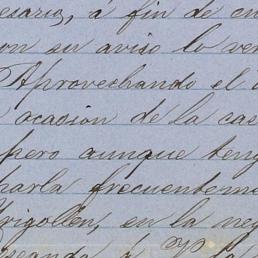 esario, á fin de en
on su aviso lo ver
Aprovechando el
ocasion de la cas
pero aunque teng
harla frecuenteme
rigollen, en la neg
deseando á V. la